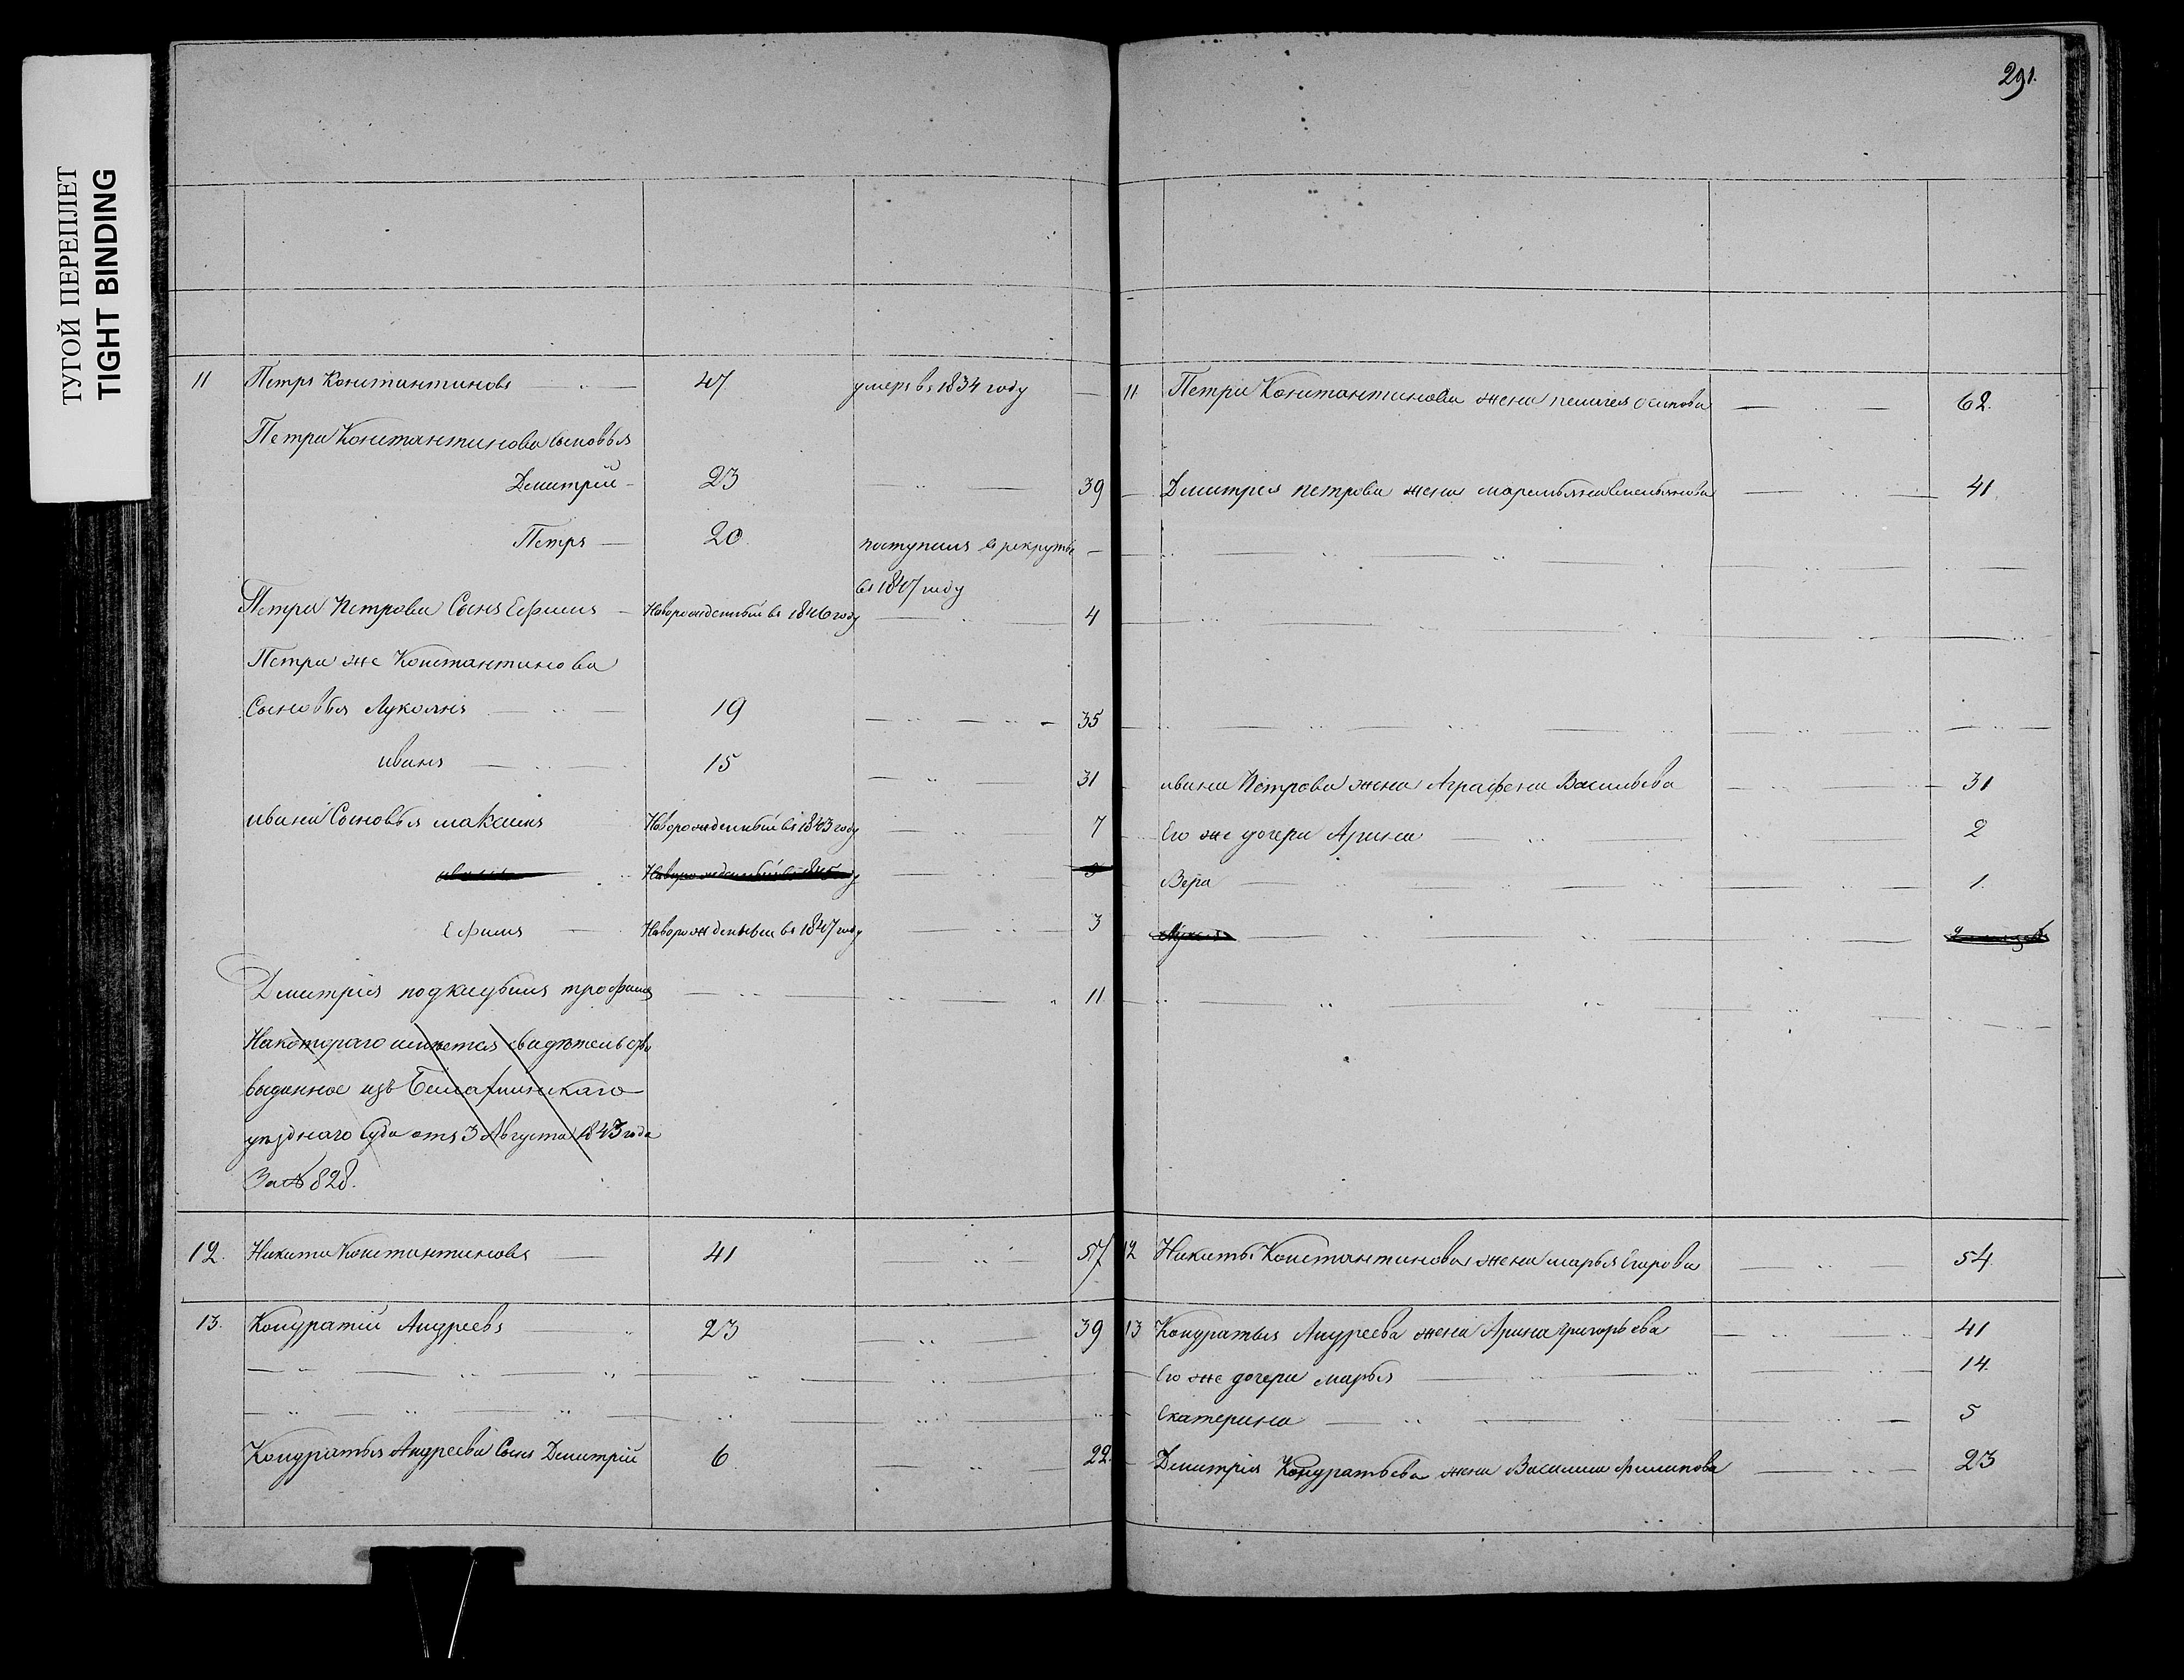 ТУГОЙ ПЕРЕПЛЕТ
TIGHT BINDING
11 Петръ Константиновъ 47. умеръ въ 1834 году
Петра Константинова сыновья
Дмитрій 23 39
Петръ 20. поступилъ в рекруты
въ 1847 году
Петра Петрова Сынъ Ефимъ Новорожденный въ 1846 году 4
Петра же Константинова
Сыновья Лукоянъ 19 35
иванъ 15 31
ивана Сыновья максимъ Новорожденный въ 1843 году 7
иванъ Новорожденный въ 1845 году 5
Ефимъ Новорожденный въ 1847 году 3
Дмитрія подкидышъ трофимъ 11
На котораго имѣется свидѣтельство
выданное изъ
уѣзднаго Суда отъ 3 Августа 1843 года
За № 828.
12. Никита Константиновъ 41 57
13. Кондратій Андреевъ 23 39
Кондратья Андреева Сынъ Дмитрій 6 22.
291.
11. Петра Константинова жена пелагея осипова 62.
Дмитрея петрова жена маремьяна емельянова 41
ивана Петрова жена Аграфена Васильева 31
Его же дочери Арина 2
Вера 1.
12 Никиты Константинова жена марья Егарова 54
13 Кондратья Андреева жена Арина григорьева 41
Его же дочери марья 14.
Екатерина 5
Дмитрія Кондратьева жена Василиса Филипова 23